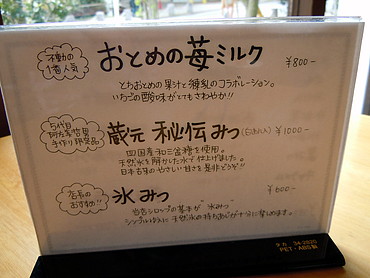 不動の
1番人気
おとめの苺ミルク ¥800-
とちおとめの果汁と練乳のコラボレーション。
いちごの酸味がとてもさわやか!!
5代目
阿左美哲男
手作り研究品
蔵元 秘伝みつ ¥1000-
四国産和三盆糖を使用。
天然氷を削かした水で仕上げました。
日本古来のやさしい甘さを是非どうぞ!!
店長の
おすすめ!!
氷みつ ¥600-
当店シロップの基本が"氷みつ"
シンプルゆえに天然氷の持ち味が十分に楽しめます。
タカ 34-2820
PET・ABS製